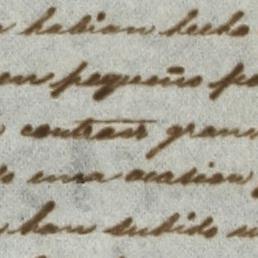 habian hecho
en pequeño
contrair gran
una ocasion
han subido